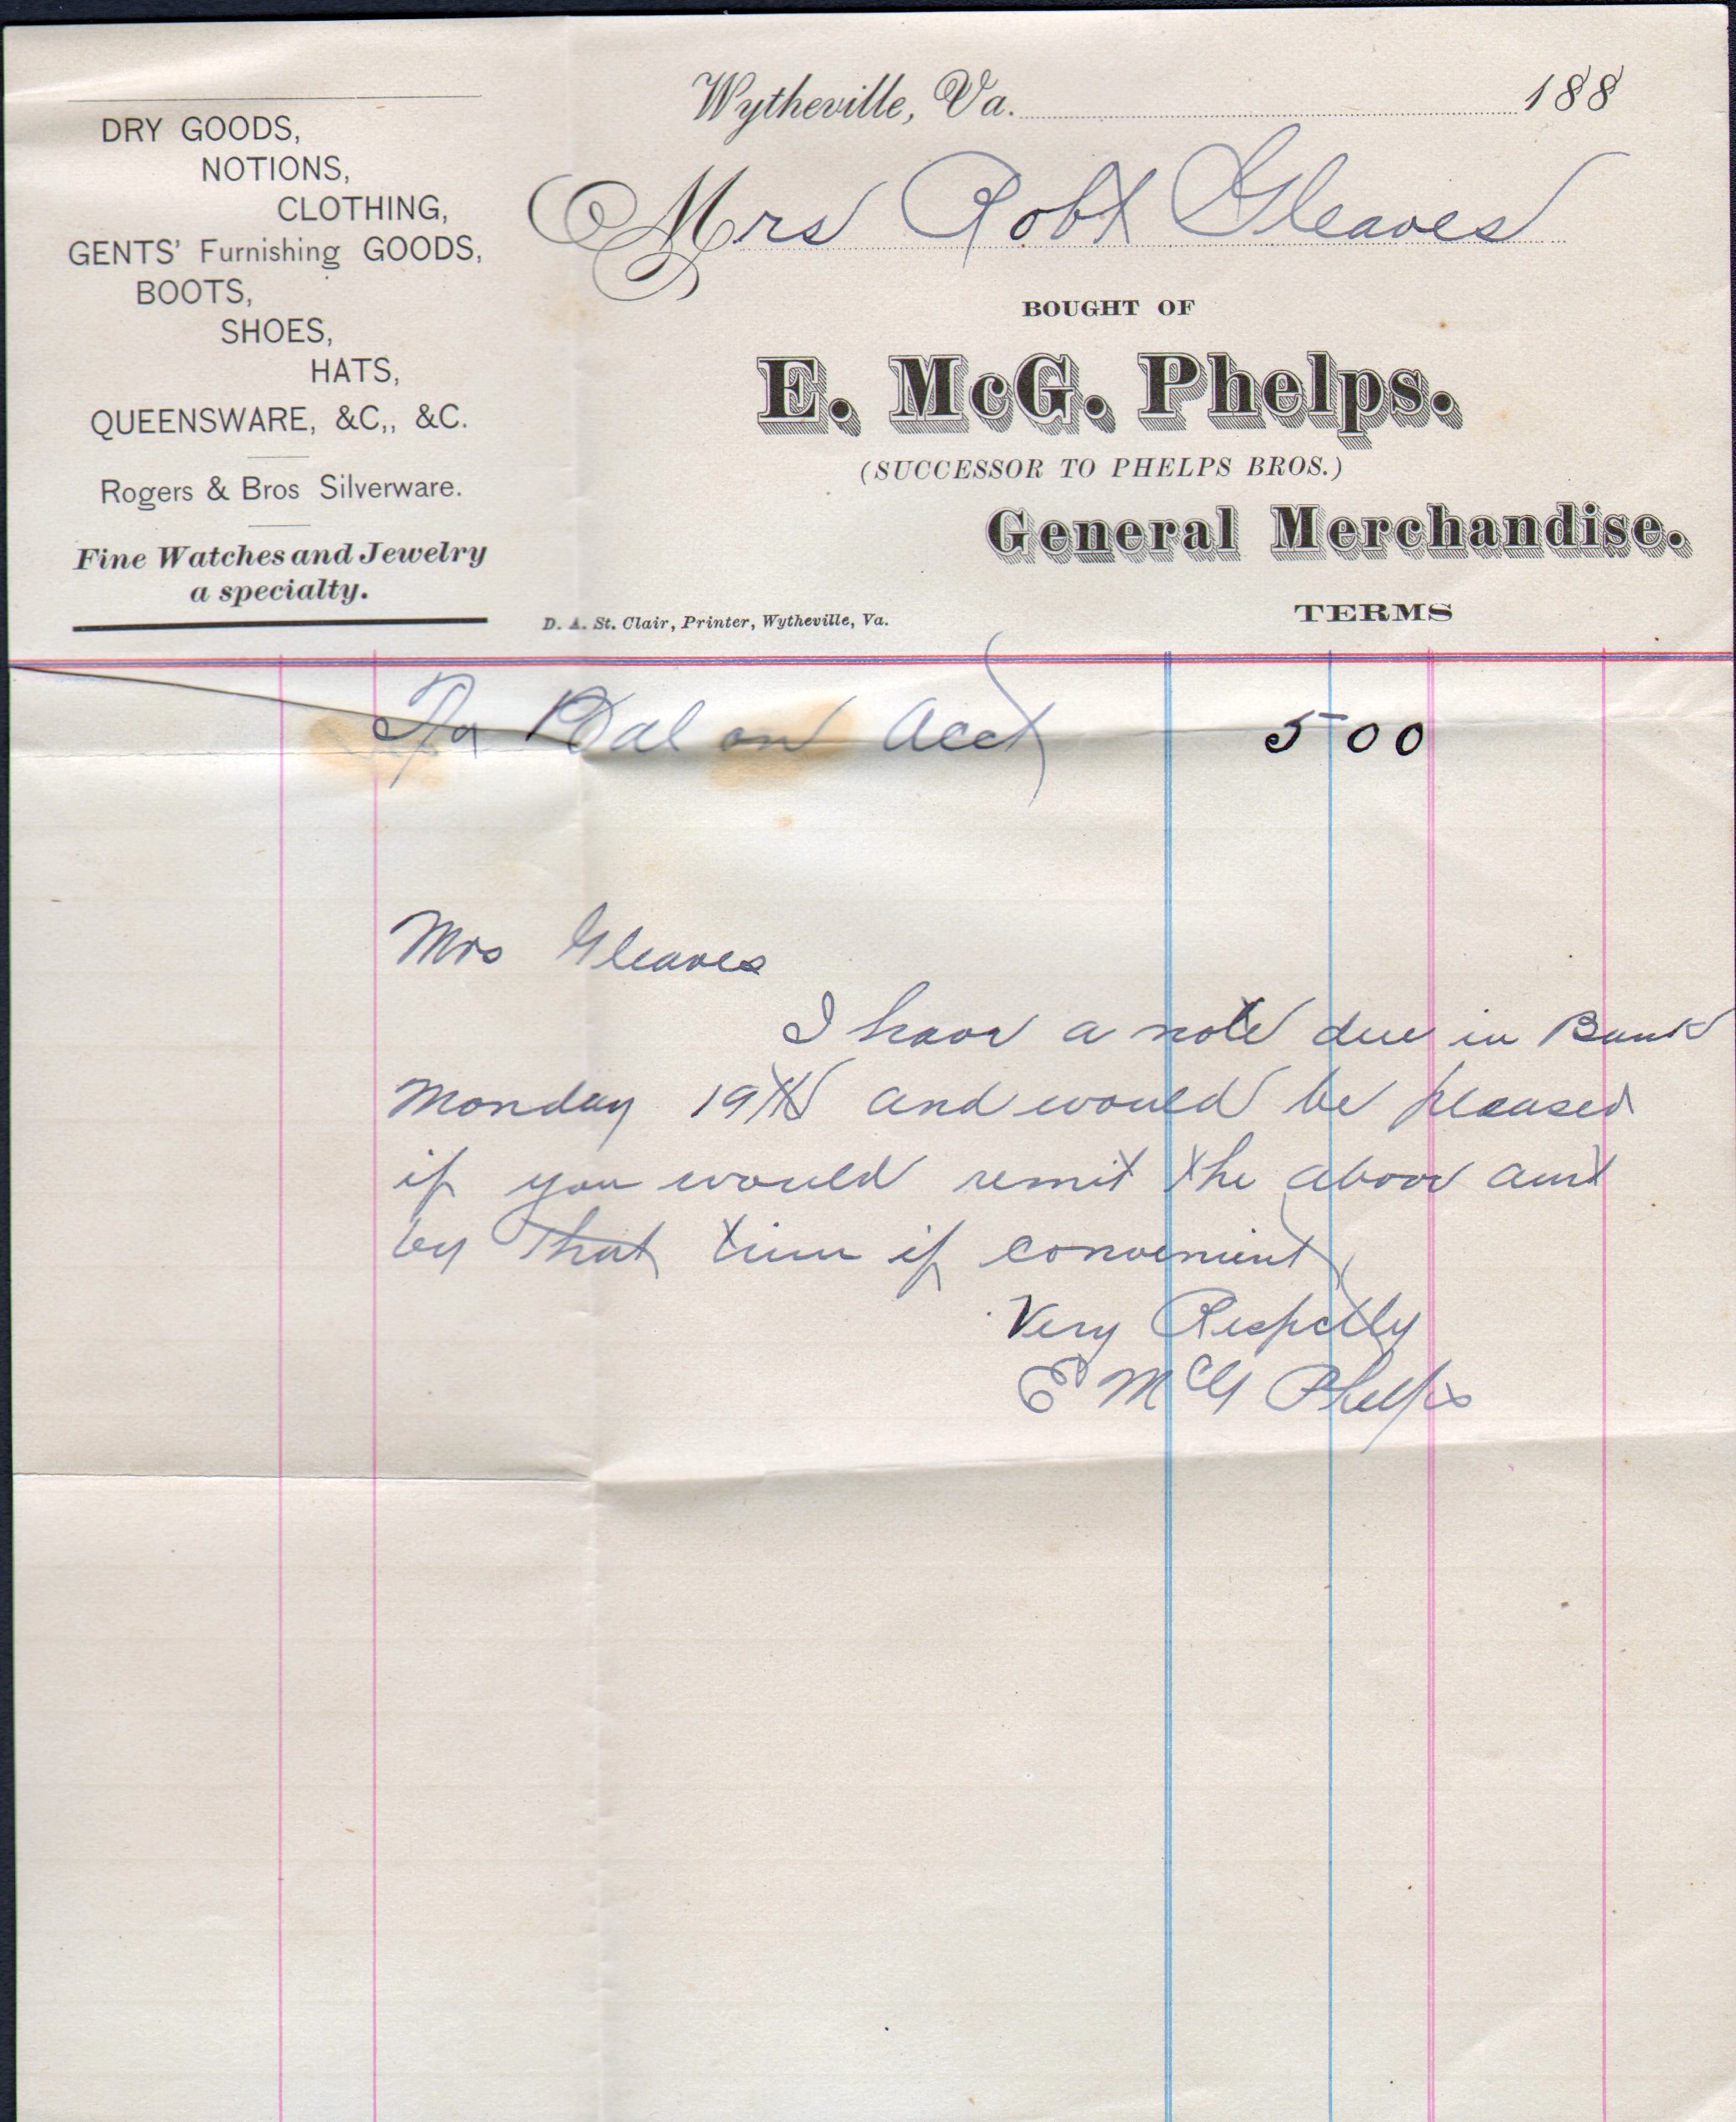 DRY GOODS,
NOTIONS,
CLOTHING,
GENTS' Furnishing GOODS,
BOOTS,
SHOES,
HATS,
QUEENSWARE, &C,, &C.
Rogers & Bros Silverware.
Fine Watches and Jewelry
a specialty.
Wytheville, Va. 188
Mrs Robt Gleaves
BOUGHT OF
E. McG. Phelps.
(SUCCESSOR TO PHELPS BROS.)
General Merchandise.
D. A. St. Clair, Printer, Wytheville, Va.
TERMS
Bal on acct 5 00
Mrs Gleaves
I have a note due in Bank
Monday 19th and would be pleased
if you would remit the above amt
by that time if convenient
Very Respctly
E McG Phelps